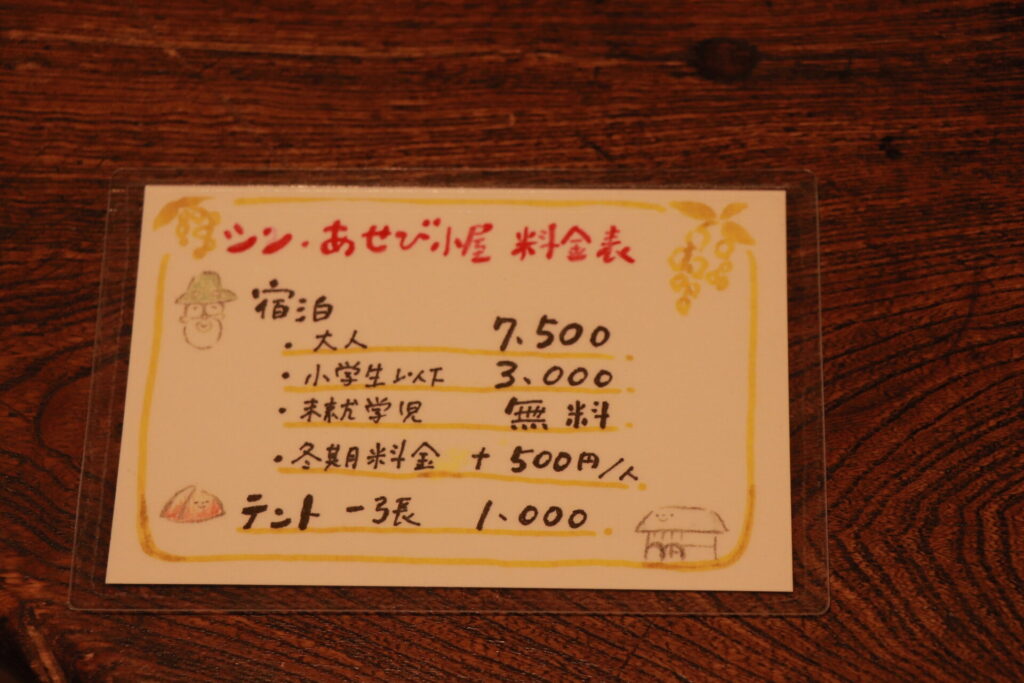 シン・あせび小屋 料金表
宿泊
・大人 7.500
・小学生以下 3.000
・未就学児 無料
・冬期料金 + 500円/人
テント一張 1.000